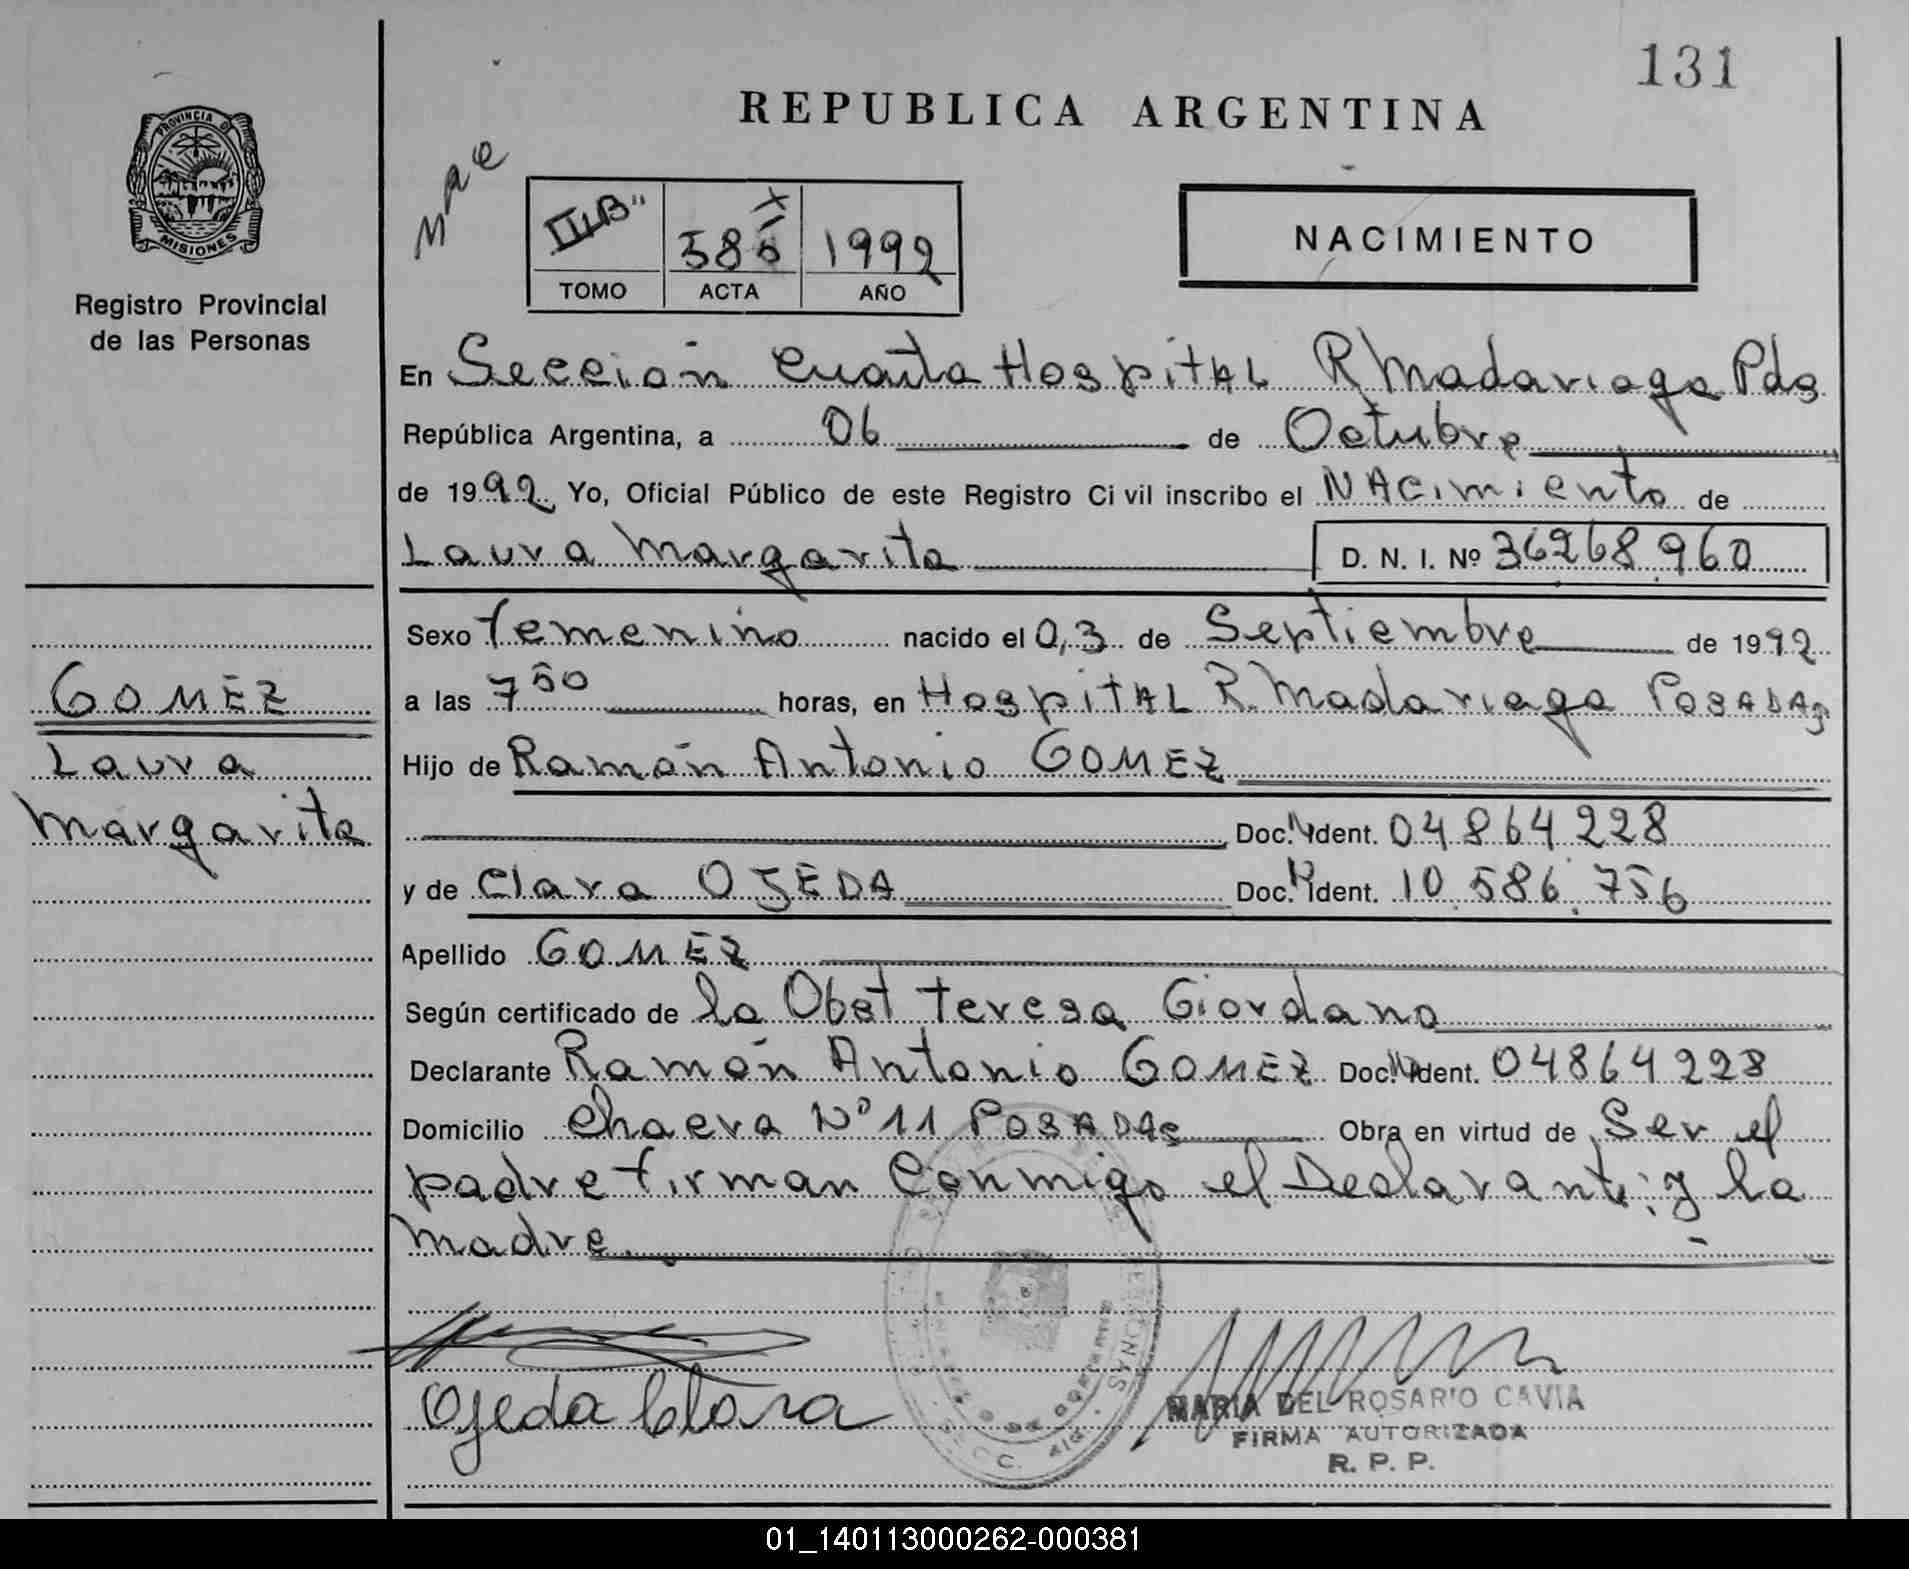 131
REPUBLICA ARGENTINA
PROVINCIA DE
MISIONES
Registro Provincial
de las Personas
II "B" 1992
TOMO ACTA AÑO
NACIMIENTO
En Sección Cuarta Hospital R Madariaga Pdas
República Argentina, a 06 de Octubre
de 1992 Yo, Oficial Público de este Registro Civil inscribo el NAcimiento de
Laura Margarita D. N. I. Nº 36268.960
Sexo femenino nacido el 03 de Septiembre de 1992
GOMEZ
a las 7 50 horas, en Hospital R. Madariaga POSADAS
Laura
Hijo de Ramón Antonio GOMEZ
Margarita
Doc. Ident. 04864228
y de Clara OJEDA Doc. Ident. 10.586.756
Apellido GOMEZ
Según certificado de la Obst Teresa Giordano
Declarante Ramón Antonio GOMEZ Doc. Ident. 04864228
Domicilio Chacra Nº 11 POSADAS Obra en virtud de Ser el
padre firman Conmigo el Declarante y la
Madre.
Ojeda Clara
MARIA DEL ROSARIO CAVIA
FIRMA AUTORIZADA
R. P. P.
01_140113000262-000381